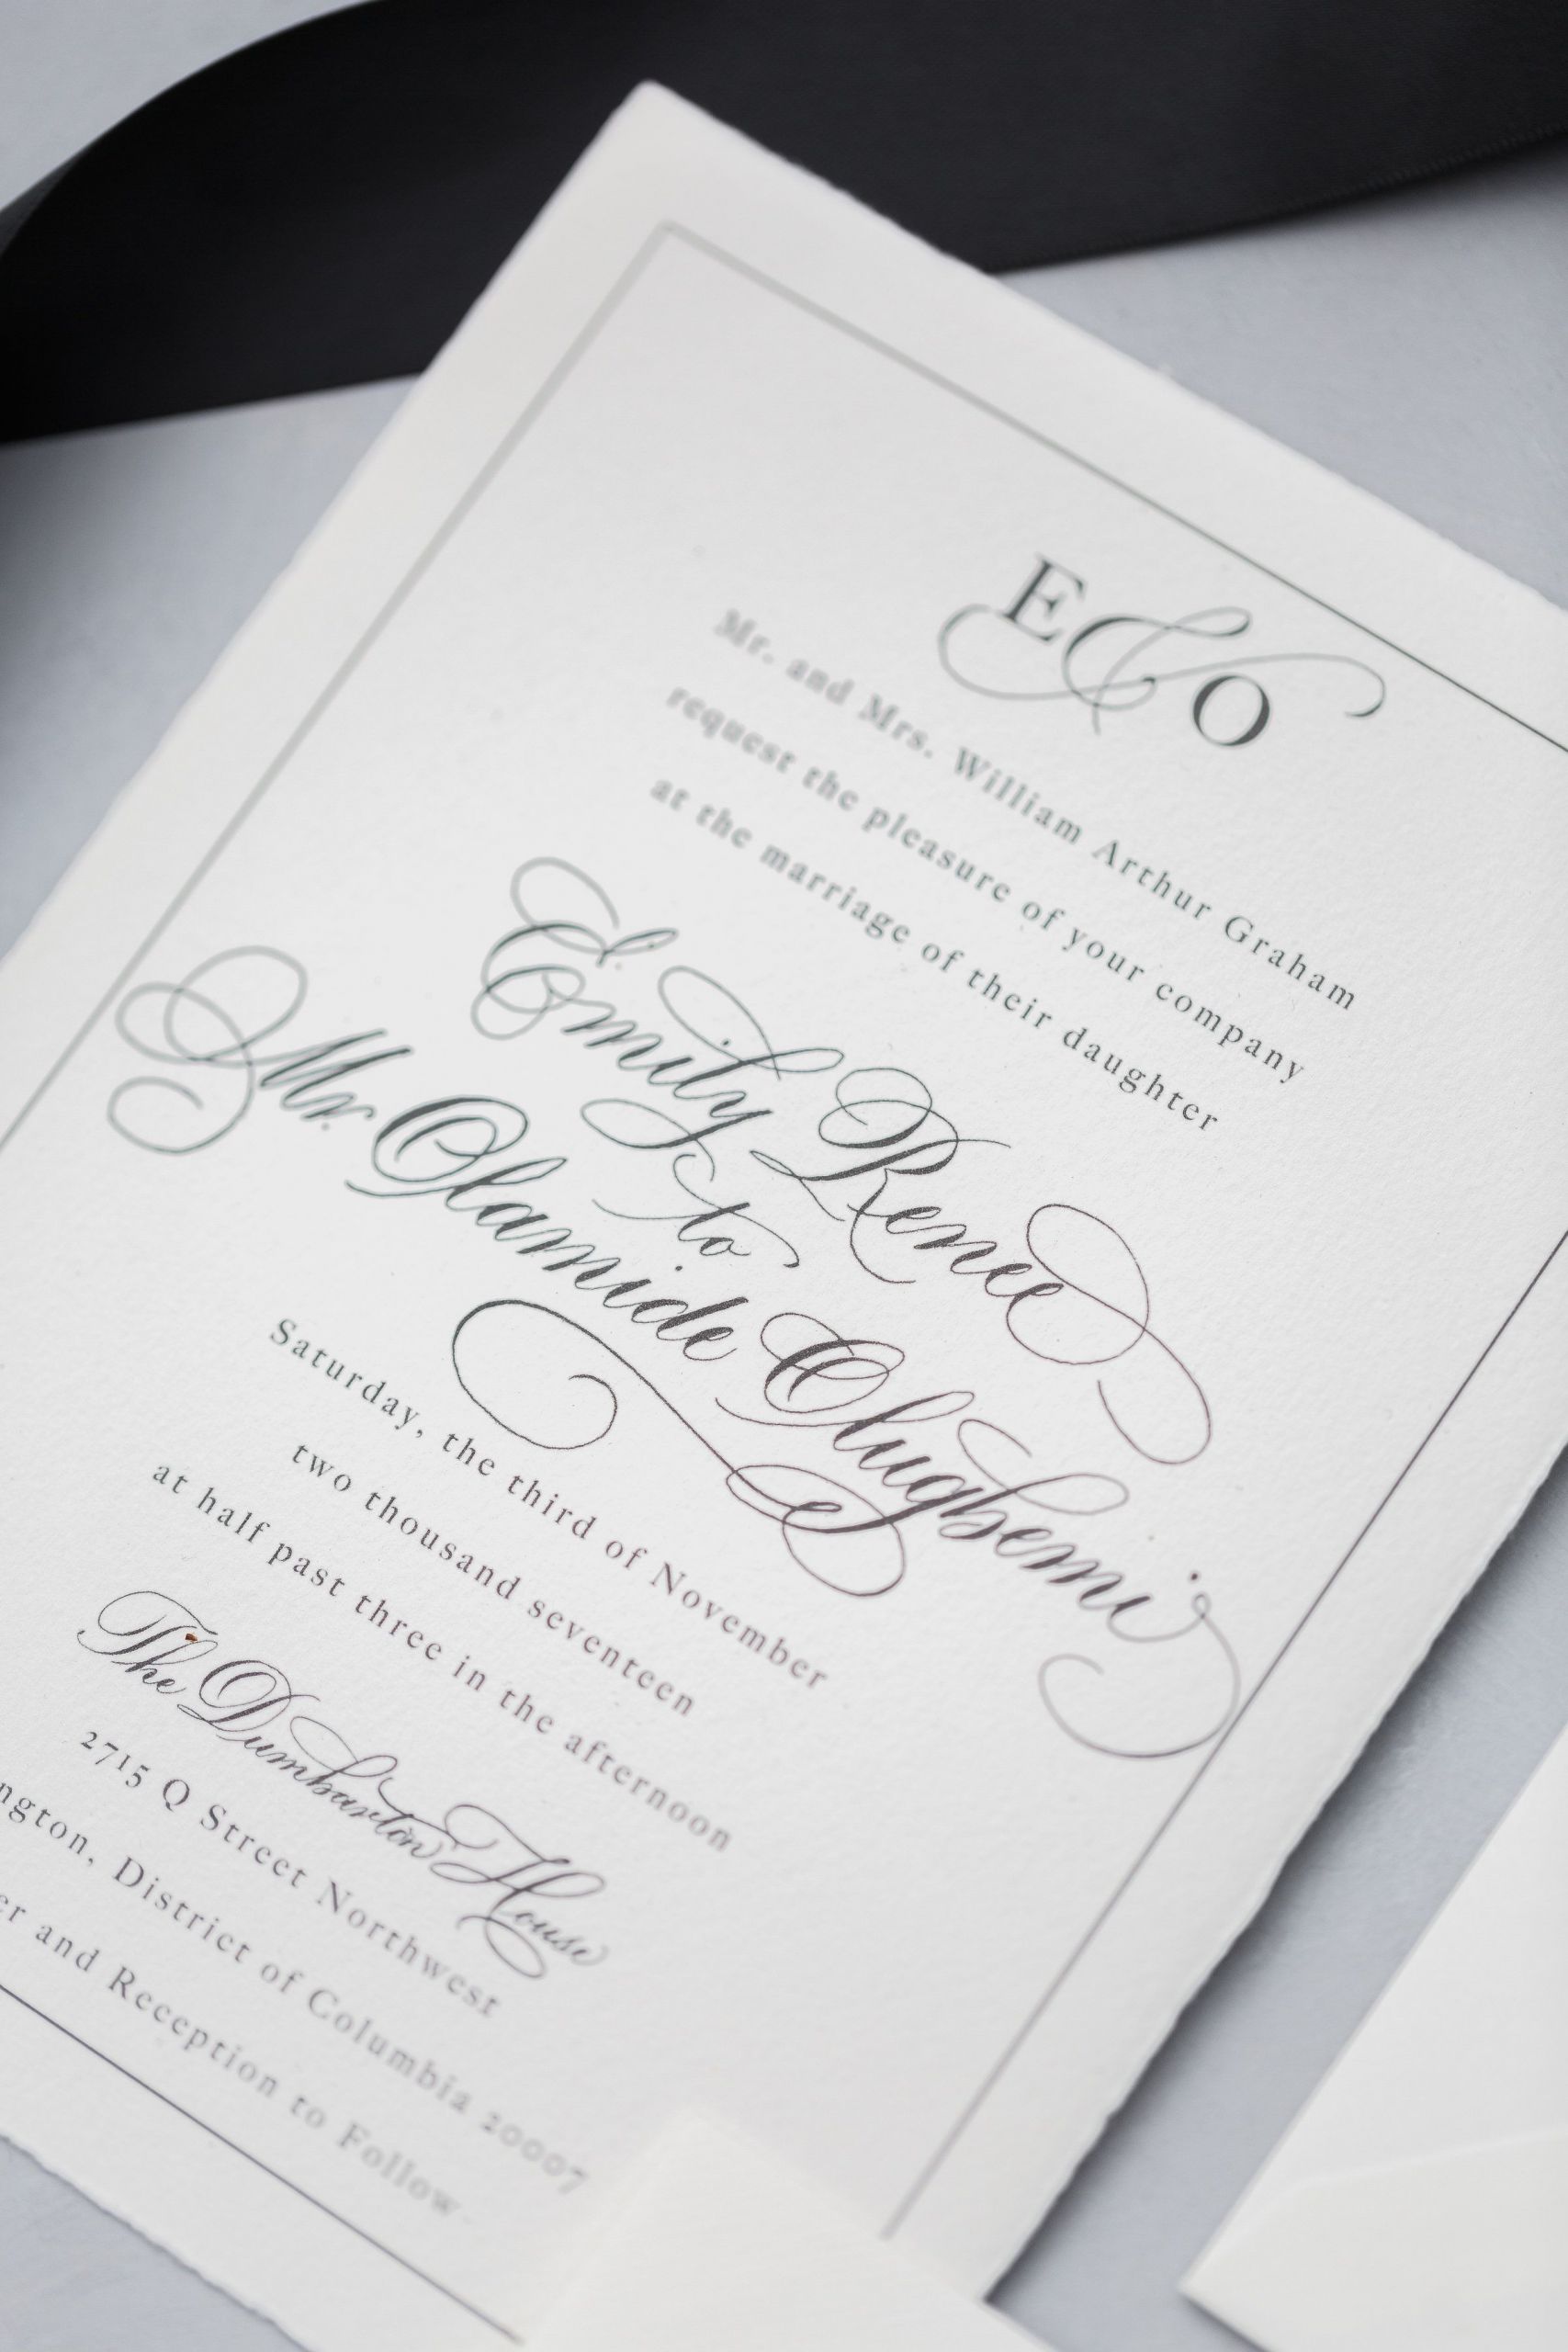 E & O
Mr. and Mrs. William Arthur Graham
request the pleasure of your company
at the marriage of their daughter
Emily Renee
to
Mr. Olamide Olugbemi
Saturday, the third of November
two thousand seventeen
at half past three in the afternoon
The Dumbarton House
2715 Q Street Northwest
ngton, District of Columbia 20007
er and Reception to Follow